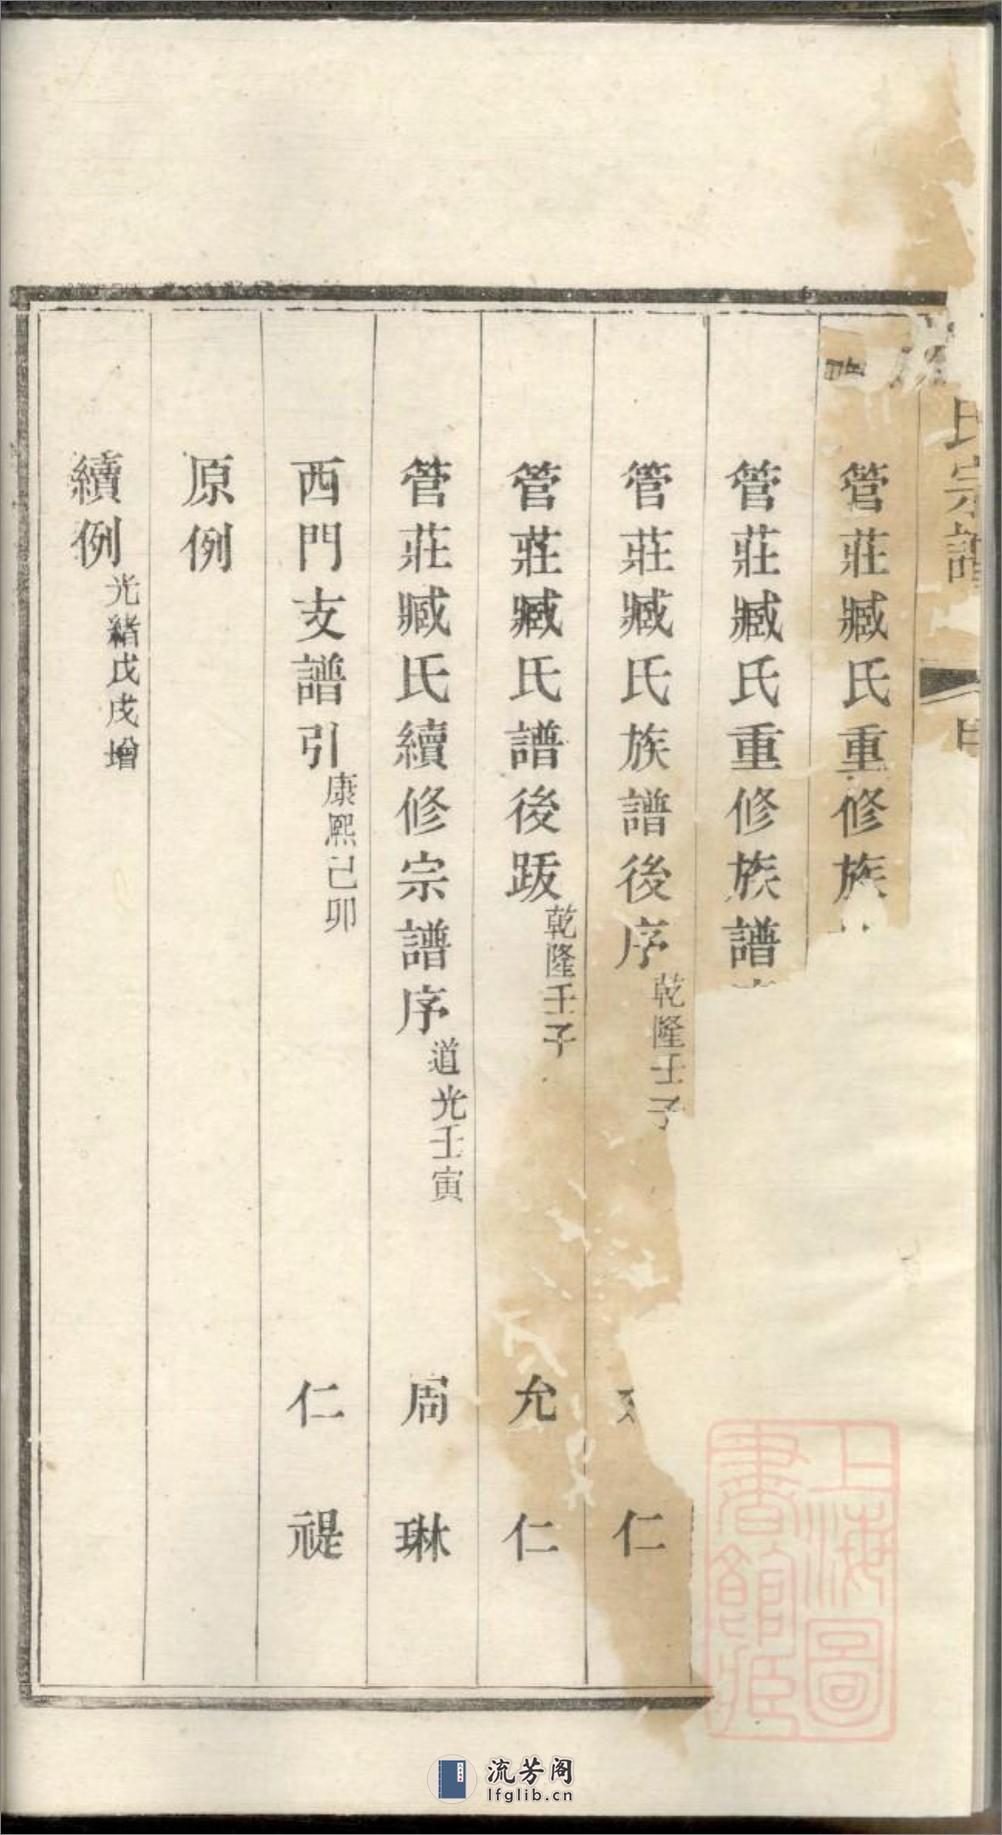 氏宗譜
管莊臧氏重修族
管莊臧氏重修族譜
管莊臧氏族譜後序 乾隆壬子 仁
管莊臧氏譜後跋 乾隆壬子 允仁
管莊臧氏續修宗譜序 道光壬寅 周琳
西門支譜引 康熙己卯 仁禔
原例
續例 光緒戊戌增
上海圖書館藏
流芳阁
lfglib.cn